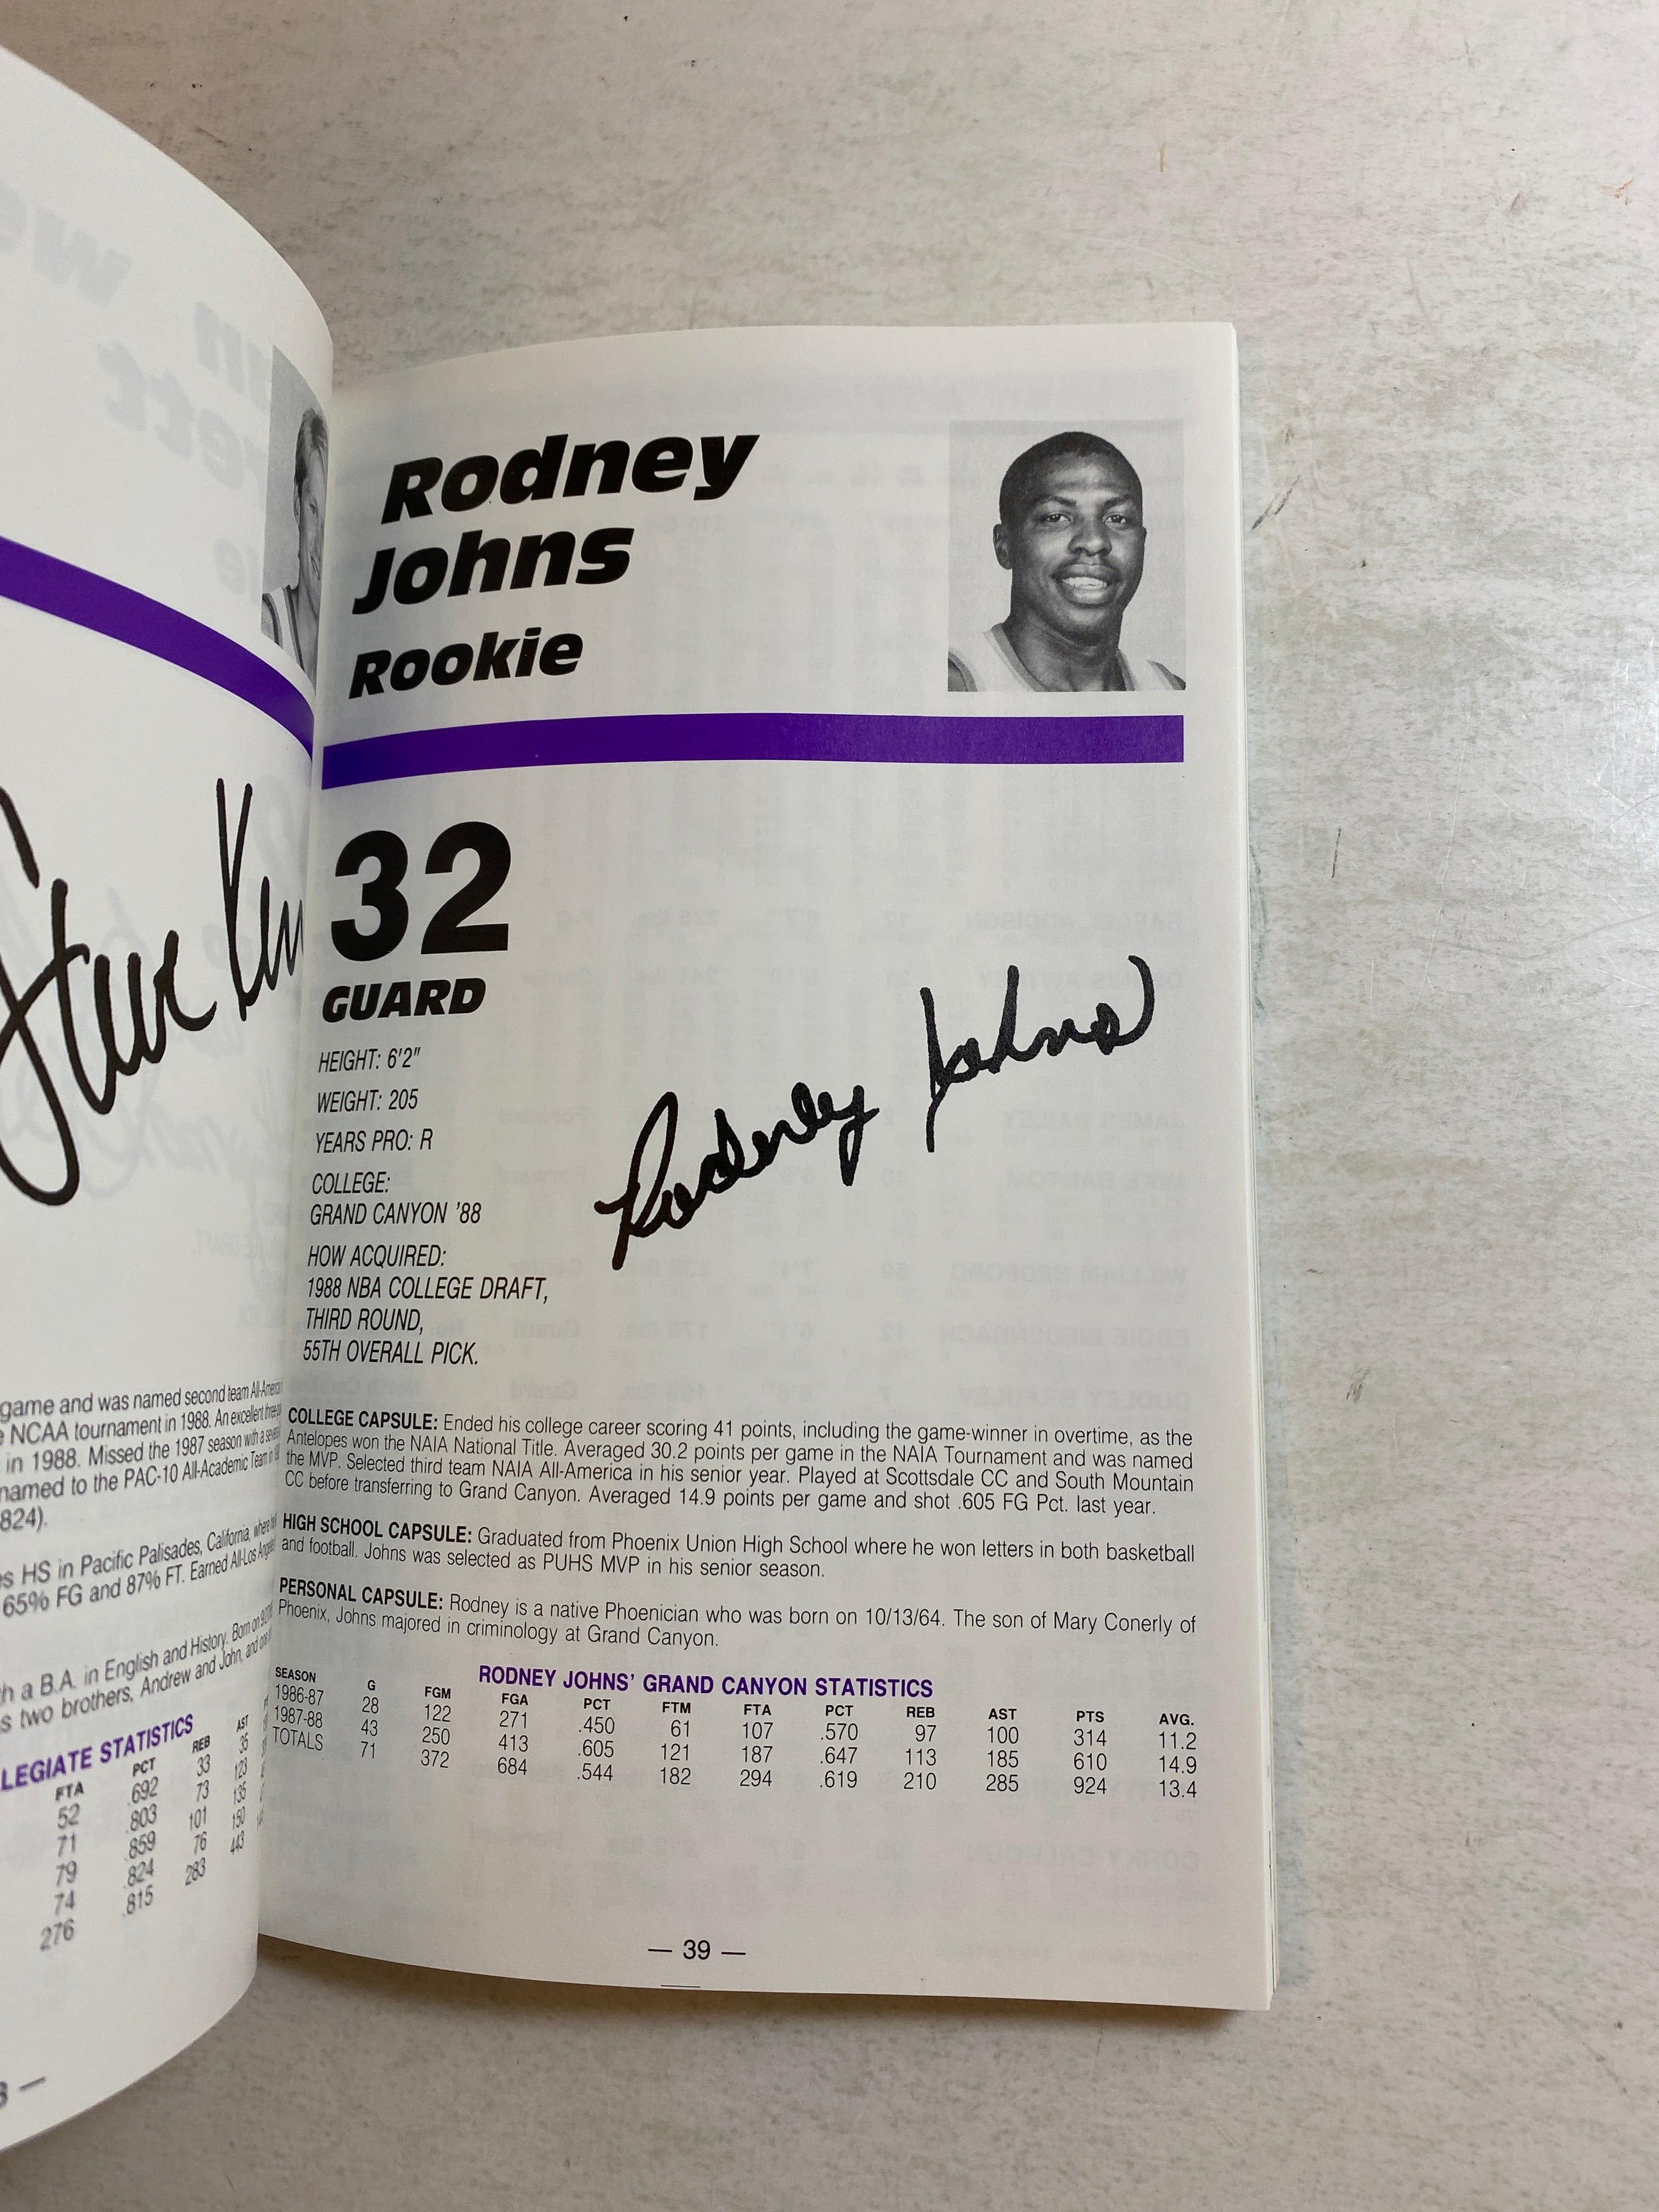 Steve Kerr
game and was named second team All-America
NCAA tournament in 1988. An excellent
in 1988. Missed the 1987 season with a
named to the PAC-10 All-Academic Team in
824).
HS in Pacific Palisades, California, where
65% FG and 87% FT. Earned All-Los Angeles
a B.A. in English and History. Born on
two brothers, Andrew and John, and one
LEGIATE STATISTICS
FTA PCT REB AST
52 .692 33 35
71 .803 73 123
79 .859 101 135
74 .824 76 150
276 .815 283 443
Rodney
Johns
Rookie
32
GUARD
HEIGHT: 6'2"
WEIGHT: 205
YEARS PRO: R
COLLEGE:
GRAND CANYON '88
HOW ACQUIRED:
1988 NBA COLLEGE DRAFT,
THIRD ROUND,
55TH OVERALL PICK.
Rodney Johns
COLLEGE CAPSULE: Ended his college career scoring 41 points, including the game-winner in overtime, as the
Antelopes won the NAIA National Title. Averaged 30.2 points per game in the NAIA Tournament and was named
the MVP. Selected third team NAIA All-America in his senior year. Played at Scottsdale CC and South Mountain
CC before transferring to Grand Canyon. Averaged 14.9 points per game and shot .605 FG Pct. last year.
HIGH SCHOOL CAPSULE: Graduated from Phoenix Union High School where he won letters in both basketball
and football. Johns was selected as PUHS MVP in his senior season.
PERSONAL CAPSULE: Rodney is a native Phoenician who was born on 10/13/64. The son of Mary Conerly of
Phoenix, Johns majored in criminology at Grand Canyon.
RODNEY JOHNS' GRAND CANYON STATISTICS
SEASON G FGM FGA PCT FTM FTA PCT REB AST PTS AVG.
1986-87 28 122 271 .450 61 107 .570 97 100 314 11.2
1987-88 43 250 413 .605 121 187 .647 113 185 610 14.9
TOTALS 71 372 684 .544 182 294 .619 210 285 924 13.4
— 39 —